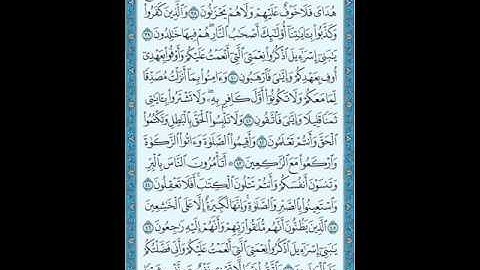 هُدَايَ فَلَا خَوْفٌ عَلَيْهِمْ وَلَا هُمْ يَحْزَنُونَ ٣٨ وَٱلَّذِينَ كَفَرُوا۟
وَكَذَّبُوا۟ بِـَٔايَٰتِنَآ أُو۟لَٰٓئِكَ أَصْحَٰبُ ٱلنَّارِ هُمْ فِيهَا خَٰلِدُونَ ٣٩
يَٰبَنِىٓ إِسْرَٰٓءِيلَ ٱذْكُرُوا۟ نِعْمَتِىَ ٱلَّتِىٓ أَنْعَمْتُ عَلَيْكُمْ وَأَوْفُوا۟ بِعَهْدِىٓ
أُوفِ بِعَهْدِكُمْ وَإِيَّٰىَ فَٱرْهَبُونِ ٤٠ وَءَامِنُوا۟ بِمَآ أَنزَلْتُ مُصَدِّقًا
لِّمَا مَعَكُمْ وَلَا تَكُونُوٓا۟ أَوَّلَ كَافِرٍۭ بِهِۦ وَلَا تَشْتَرُوا۟ بِـَٔايَٰتِى
ثَمَنًا قَلِيلًا وَإِيَّٰىَ فَٱتَّقُونِ ٤١ وَلَا تَلْبِسُوا۟ ٱلْحَقَّ بِٱلْبَٰطِلِ وَتَكْتُمُوا۟
ٱلْحَقَّ وَأَنتُمْ تَعْلَمُونَ ٤٢ وَأَقِيمُوا۟ ٱلصَّلَوٰةَ وَءَاتُوا۟ ٱلزَّكَوٰةَ
وَٱرْكَعُوا۟ مَعَ ٱلرَّٰكِعِينَ ٤٣ ۞ أَتَأْمُرُونَ ٱلنَّاسَ بِٱلْبِرِّ
وَتَنسَوْنَ أَنفُسَكُمْ وَأَنتُمْ تَتْلُونَ ٱلْكِتَٰبَ أَفَلَا تَعْقِلُونَ ٤٤
وَٱسْتَعِينُوا۟ بِٱلصَّبْرِ وَٱلصَّلَوٰةِ وَإِنَّهَا لَكَبِيرَةٌ إِلَّا عَلَى ٱلْخَٰشِعِينَ
٤٥ ٱلَّذِينَ يَظُنُّونَ أَنَّهُم مُّلَٰقُوا۟ رَبِّهِمْ وَأَنَّهُمْ إِلَيْهِ رَٰجِعُونَ ٤٦
يَٰبَنِىٓ إِسْرَٰٓءِيلَ ٱذْكُرُوا۟ نِعْمَتِىَ ٱلَّتِىٓ أَنْعَمْتُ عَلَيْكُمْ وَأَنِّى فَضَّلْتُكُمْ